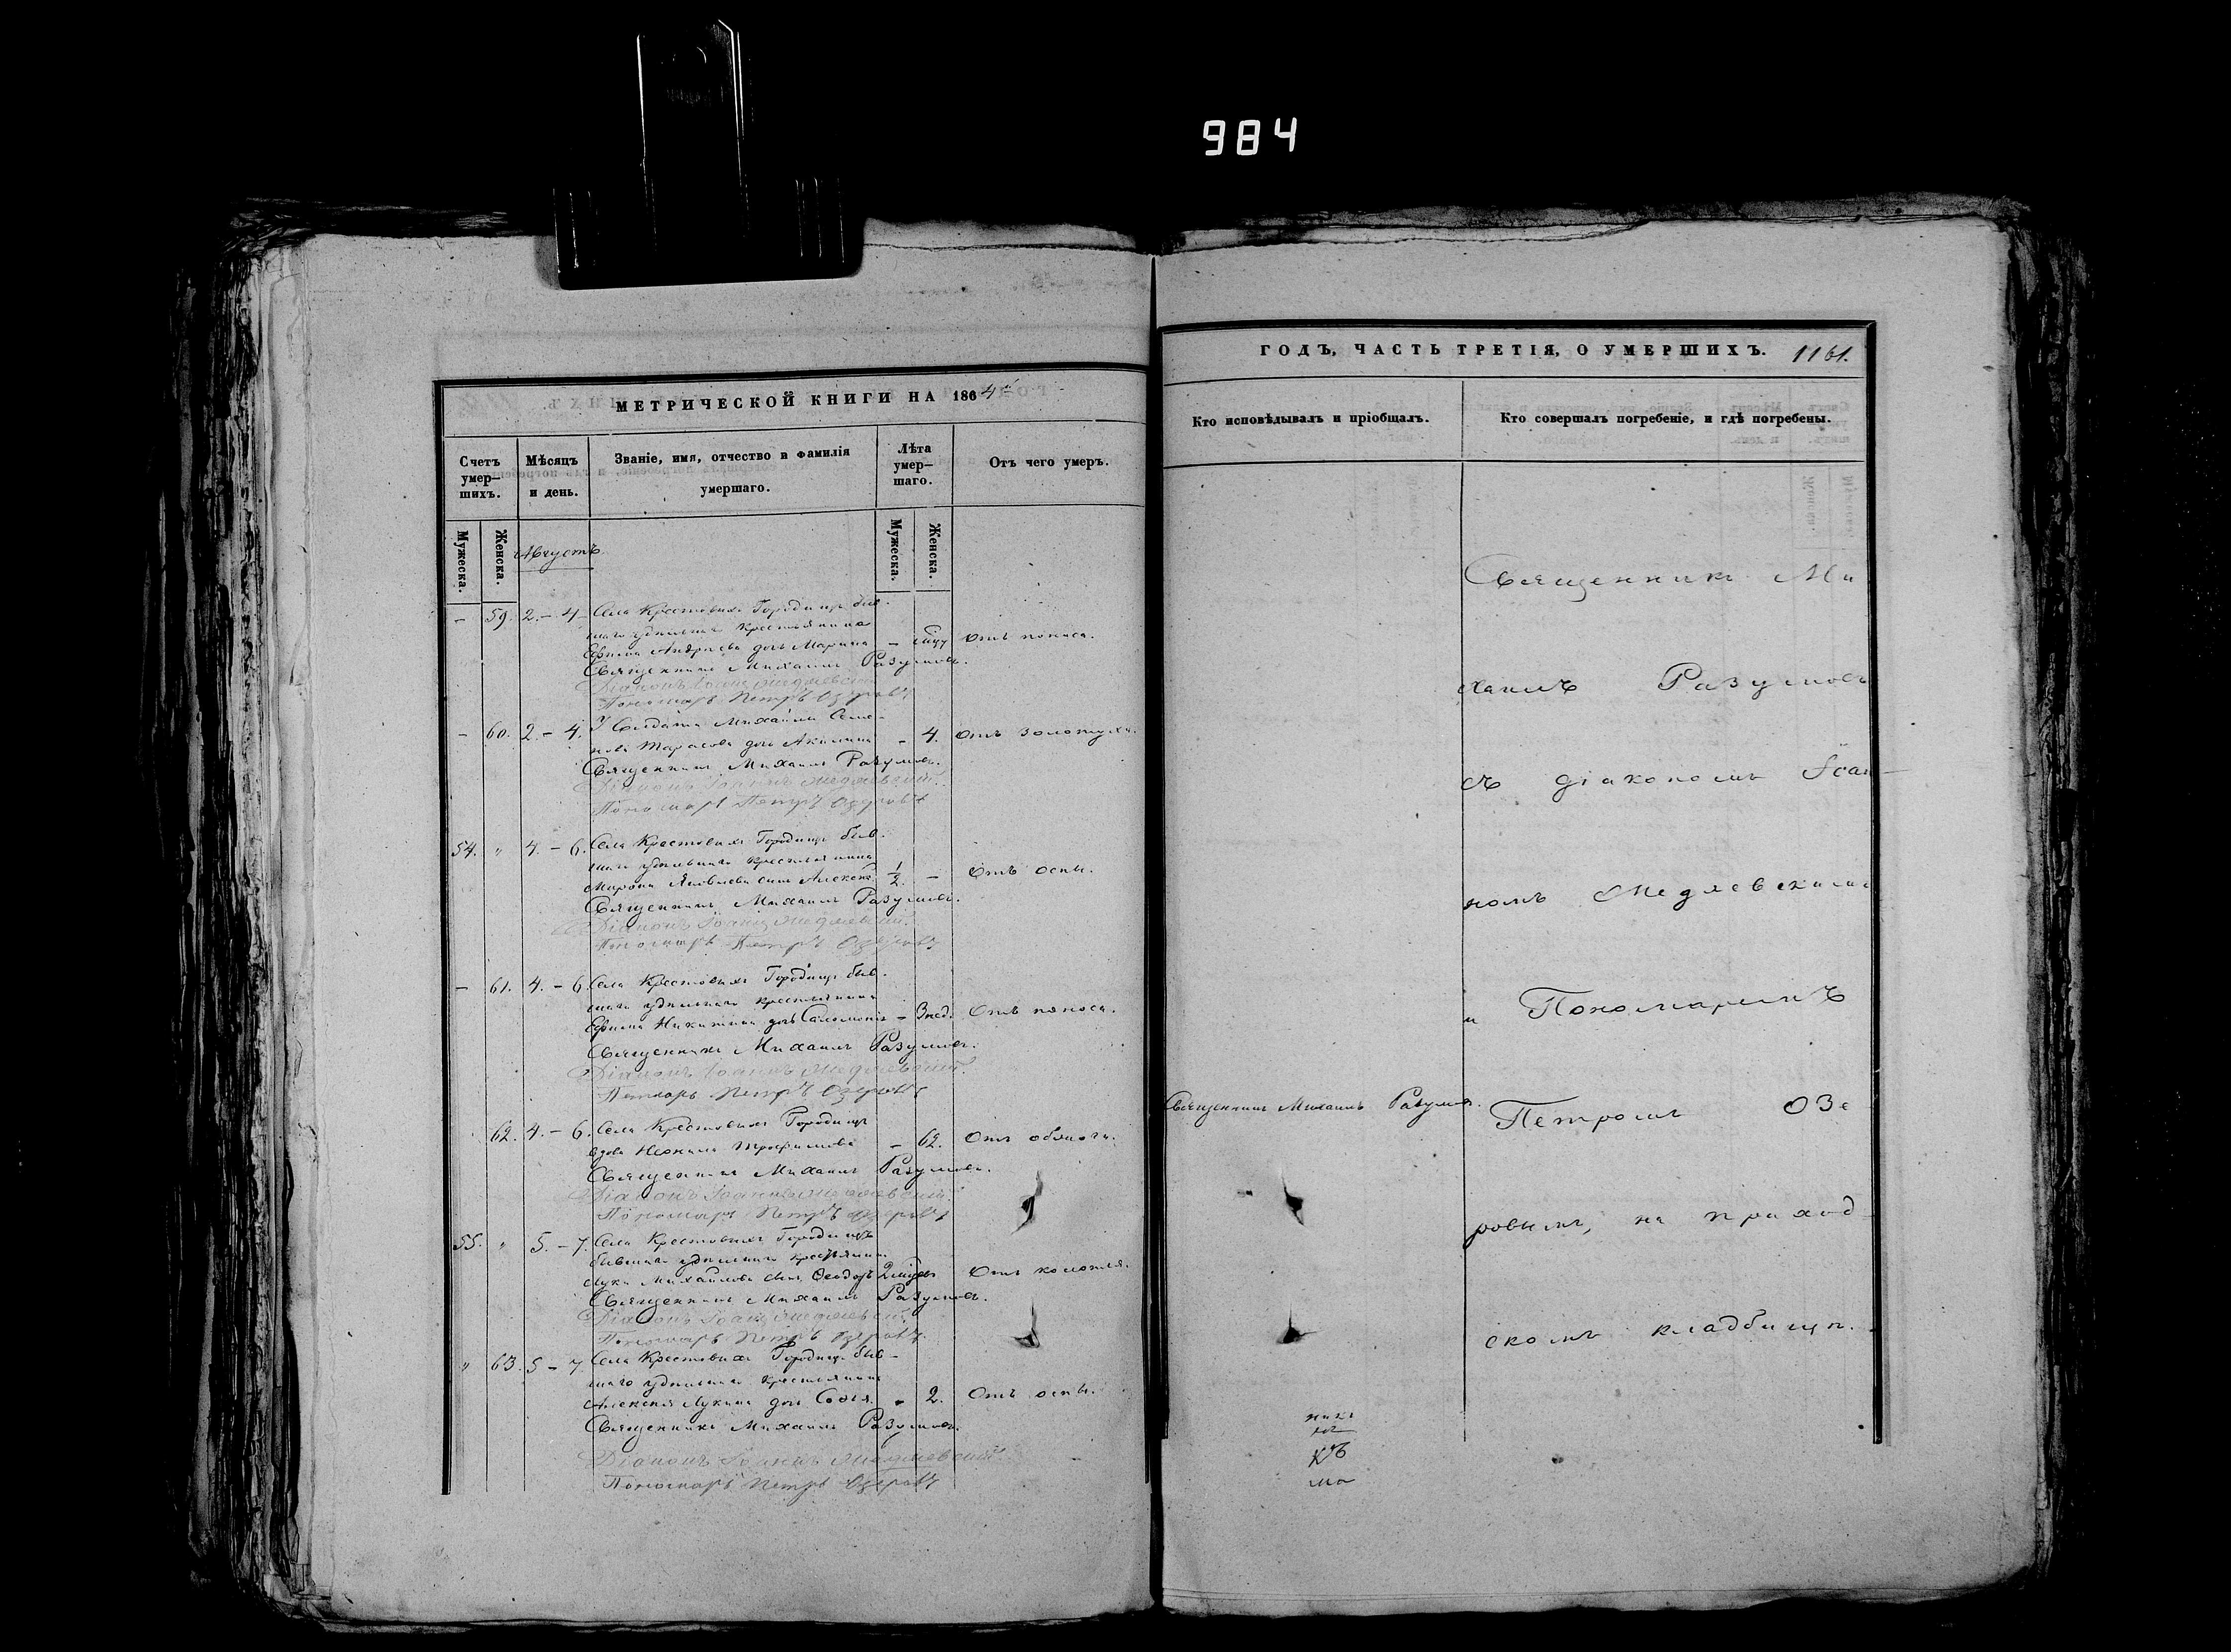 984
МЕТРИЧЕСКОЙ КНИГИ НА 1864й
Счетъ умер-шихъ.
Мѣсяцъ и день.
Званіе, имя, отчество и фамилія умершаго.
Лѣта умер-шаго.
Отъ чего умеръ.
Мужеска.
Женска.
Августъ
Мужеска.
Женска.
- 59. 2.-4 Села Крестовыхъ Городищъ быв-
шаго удѣльнаго крестьянина
Андреева дочь Марина - Отъ поноса.
Священникъ Михаилъ Разумовъ.
Діаконъ Іоаннъ Медяевскій
Пономарь Петръ Озеровъ
- 60. 2.-4. Солдата Михаила Семе-
нова Тарасова дочь Акилина - 4. Отъ золотухи.
Священникъ Михаилъ Разумовъ.
Діаконъ Іоаннъ Медяевскій.
Пономарь Петръ Озеровъ
54. " 4.-6. Села Крестовыхъ Городищъ быв-
шаго удѣльнаго крестьянина
Мирона Яковлева сынъ Алексѣй 1/2. - Отъ оспы.
Священникъ Михаилъ Разумовъ.
Діаконъ Іоаннъ Медяевскій.
Пономарь Петръ Озеровъ
- 61. 4.-6. Села Крестовыхъ Городищъ быв-
шаго удѣльнаго крестьянина
Никитина дочь Саломонія - 3 нед. Отъ поноса.
Священникъ Михаилъ Разумовъ.
Діаконъ Іоаннъ Медяевскій.
Пономарь Петръ Озеровъ
62. 4.-6. Села Крестовыхъ Городищъ
вдова Неонила Трофимова - 62.
Священникъ Михаилъ Разумовъ.
Діаконъ Іоаннъ Медяевскій.
Пономарь Петръ Озеровъ
55. " 5.-7. Села Крестовыхъ Городищъ
бывшаго удѣльнаго крестьянина
Луки Михайлова сынъ Ѳеодоръ Отъ колотья.
Священникъ Михаилъ Разумовъ.
Діаконъ Іоаннъ Медяевскій
Пономарь Петръ Озеровъ
" 63. 5-7. Села Крестовыхъ Городищъ быв-
шаго удѣльнаго крестьянина
Алексѣя Лукина дочь Софія. " 2. Отъ оспы.
Священникъ Михаилъ Разумовъ.
Діаконъ Іоаннъ Медяевскій
Пономарь Петръ Озеровъ
ГОДЪ, ЧАСТЬ ТРЕТІЯ, О УМЕРШИХЪ. 1161.
Кто исповѣдывалъ и пріобщалъ.
Кто совершалъ погребеніе, и гдѣ погребены.
Священникъ Михаилъ Разумовъ.
Священникъ Ми
хаилъ Разумовъ
съ діакономъ Іоан-
номъ Медяевскимъ
и Пономаремъ
Петромъ Озе
ровымъ, на приход
скомъ кладбищѣ.